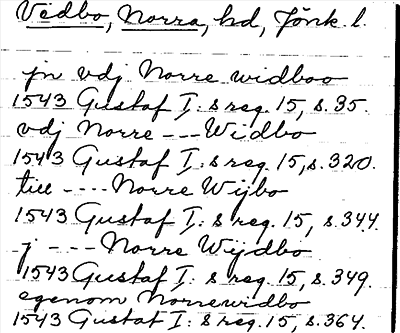 Vedbo, Norra, hd, Jönk. l.
jn vdj Norre widboo
1543 Gustaf I:s reg. 15, s. 35.
vdj Norre --- Widbo
1543 Gustaf I:s reg. 15, s. 320.
till ---- Norre Wijbo
1543 Gustaf I:s reg. 15, s. 344.
j --- Norre Wijdbo
1543 Gustaf I:s reg. 15, s. 349.
egenom Norrewidbo
1543 Gustaf I:s reg. 15, s. 364.